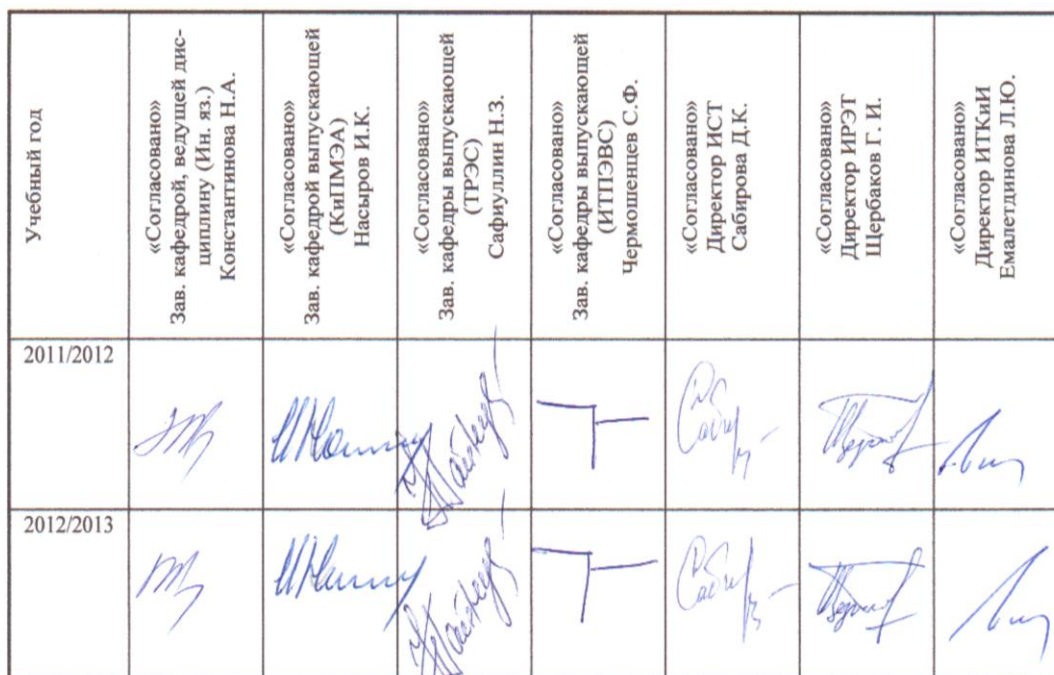 Учебный год
«Согласовано»
Зав. кафедрой, ведущей дис-
циплину (Ин. яз.)
Константинова Н.А.
«Согласовано»
Зав. кафедрой выпускающей
(КиПМЭА)
Насыров И.К.
«Согласовано»
Зав. кафедры выпускающей
(ТРЭС)
Сафиуллин Н.З.
«Согласовано»
Зав. кафедры выпускающей
(ИТПЭВС)
Чермошенцев С.Ф.
«Согласовано»
Директор ИСТ
Сабирова Д.К.
«Согласовано»
Директор ИРЭТ
Щербаков Г. И.
«Согласовано»
Директор ИТКиИ
Емалетдинова Л.Ю.
2011/2012
2012/2013